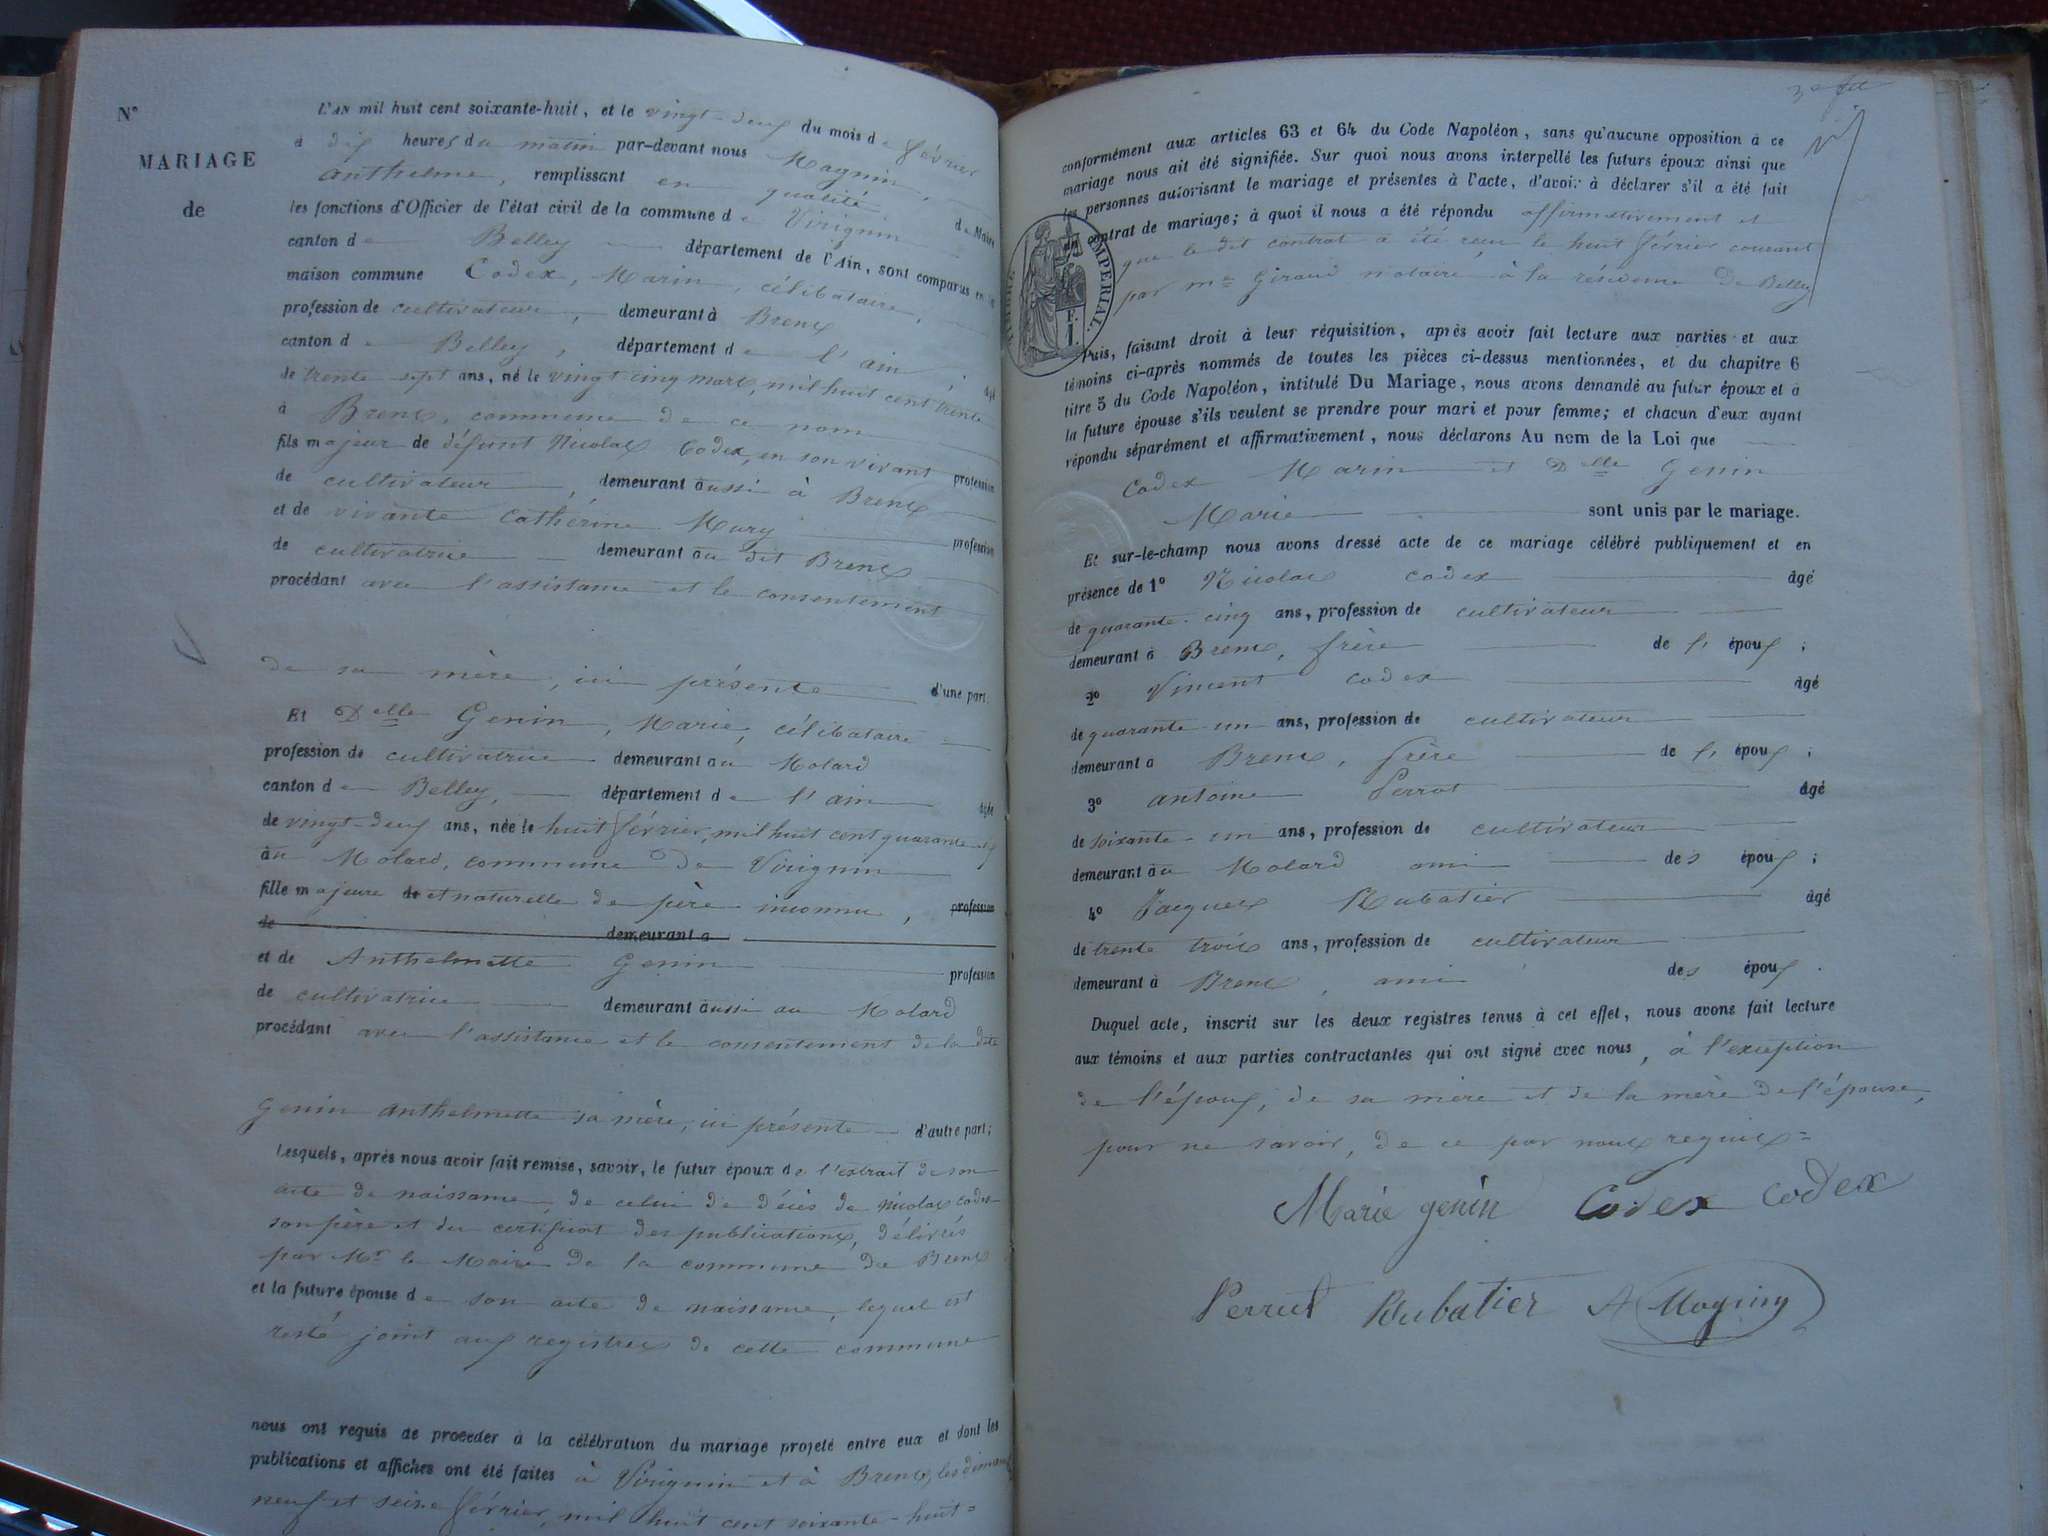 N°
MARIAGE
de
L'AN mil huit cent soixante-huit, et le vingt-deux du mois de février
à dix heures du matin par-devant nous Magnin,
Anthelme, remplissant en qualité de Maire
les fonctions d'Officier de l'état civil de la commune de Virignin
canton de Belley département de l'Ain, sont comparus en la
maison commune Codex, Marin, célibataire,
profession de cultivateur, demeurant à Brens
canton de Belley, département de l'ain, âgé
de trente sept ans, né le vingt cinq mars, mil huit cent trente
à Brens, commune de ce nom
fils majeur de défunt Nicolas Codex, en son vivant profession
de cultivateur, demeurant aussi à Brens
et de vivante Cathérine Mury profession
de cultivatrice demeurant au dit Brens
procédant avec l'assistance et le consentement
de sa mère, ici présente d'une part.
Et Delle Genin, Marie, célibataire
profession de cultivatrice demeurant au Molard
canton de Belley, département de l'ain âgée
de vingt-deux ans, née le huit février, mil huit cent quarante six
au Molard, commune de Virignin
fille majeure de et naturelle de père inconnu, profession
de demeurant a
et de Anthelmette Genin profession
de cultivatrice demeurant aussi au Molard
procédant avec l'assistance et le consentement de la dite
Genin Anthelmette sa mère, ici présente d'autre part;
Lesquels, après nous avoir fait remise, savoir, le futur époux de l'extrait de son
acte de naissance, de celui de décès de Nicolas Codex
son père et du certificat des publications, délivrés
par Mr le Maire de la commune de Brens
et la future épouse de son acte de naissance, lequel est
resté joint aux registres de cette commune
nous ont requis de procéder à la célébration du mariage projeté entre eux et dont les
publications et affiches ont été faites à Virignin et à Brens, les dimanches
neuf et seize février, mil huit cent soixante-huit=
conformément aux articles 63 et 64 du Code Napoléon, sans qu'aucune opposition à ce
mariage nous ait été signifiée. Sur quoi nous avons interpellé les futurs époux ainsi que
les personnes autorisant le mariage et présentes à l'acte, d'avoir à déclarer s'il a été fait
un contrat de mariage; à quoi il nous a été répondu affirmativement et
que le dit contrat a été reçu le huit février courant
par me Giraud notaire à la résidence de Belley
TIMBRE IMPERIAL.
1 F.
Puis, faisant droit à leur réquisition, après avoir fait lecture aux parties et aux
témoins ci-après nommés de toutes les pièces ci-dessus mentionnées, et du chapitre 6
titre 5 du Code Napoléon, intitulé Du Mariage, nous avons demandé au futur époux et à
la future épouse s'ils veulent se prendre pour mari et pour femme; et chacun d'eux ayant
répondu séparément et affirmativement, nous déclarons Au nom de la Loi que
Codex Marin et Delle Genin
Marie sont unis par le mariage.
Et sur-le-champ nous avons dressé acte de ce mariage célébré publiquement et en
présence de 1° Nicolas Codex âgé
de quarante-cinq ans, profession de cultivateur
demeurant à Brens, frère de l' époux;
2° Vincent Codex âgé
de quarante-un ans, profession de cultivateur
demeurant a Brens, frère de l' époux;
3° Antoine Perrot âgé
de soixante-un ans, profession de cultivateur
demeurant au Molard ami des époux;
4° Jacques Rubatier âgé
de trente trois ans, profession de cultivateur
demeurant à Brens, ami des époux.
Duquel acte, inscrit sur les deux registres tenus à cet effet, nous avons fait lecture
aux témoins et aux parties contractantes qui ont signé avec nous, à l'exception
de l'époux, de sa mère et de la mère de l'épouse,
pour ne savoir, de ce par nous requis=
Marie genin Codex Codex
Perrut Rubatier A Magnin